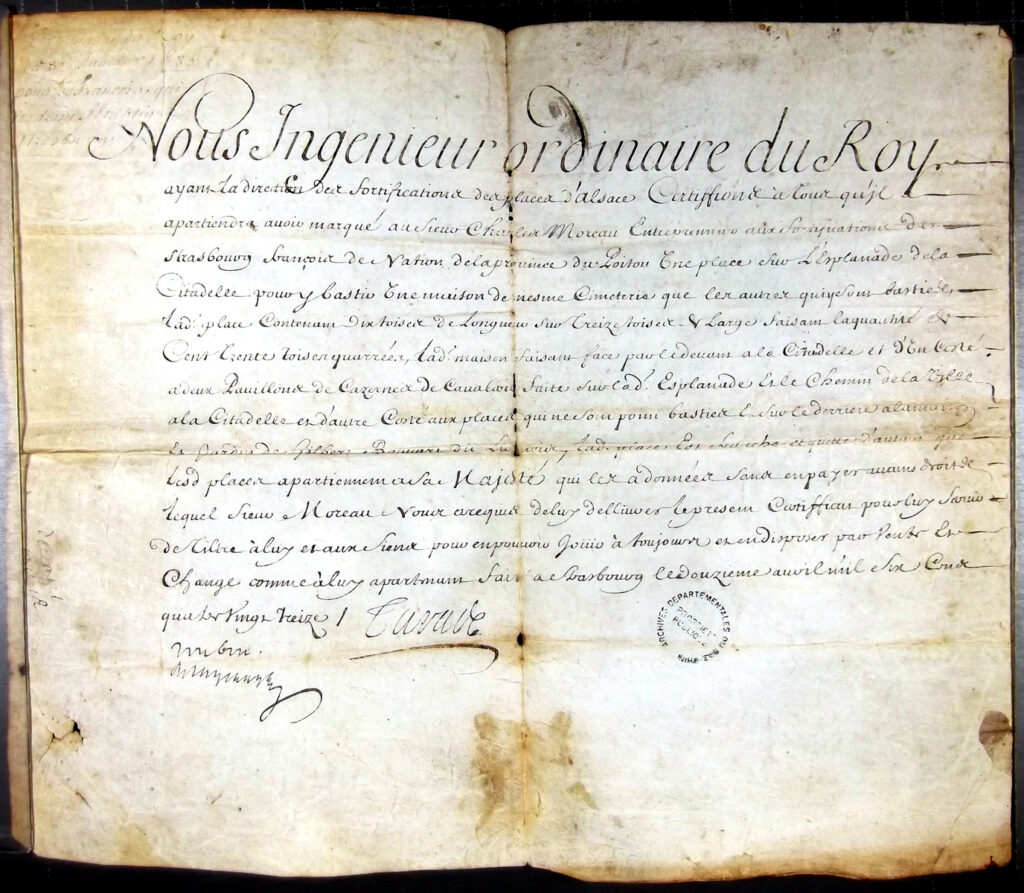 Nous Ingenieur ordinaire du Roy
ayant La direction des fortifications des places d'alsace Certiffions a tous qu'jl
apartiendra avoir marqué au Sieur Charles Moreau Entrepreneur aux fortifications de
strasbourg françois de Nation de la province du Poitou Une place sur L'Esplanade de la
Citadelle pour y bastir Une maison de mesme Cimeterie que les autres qui y sont basties,
Lad. place Contenant Dix toises de Longueur sur Treize toises de Large faisant la quantité de
Cent Trente toises quarrées, Lad. maison faisant face par le devant a la Citadelle et d'Un Costé
a deux Pavillons de Cazernes de Cavalerie faite sur lad. Esplanade Et le Chemin de la Ville
a la Citadelle et d'autre Costé aux places qui ne sont point basties Et sur le derriere a la maison
Et Jardin de Gilbert Lad. place Est et quitte d'autant que
Lesd places apartiennent a Sa Majesté qui les a données sans en payer aucuns droit de
lequel Sieur Moreau Nous a requis de luy delivrer le present Certifficat pour luy servir
de Tiltre à luy et aux Siens pour en pouvoir Jouir à toujours et en disposer par Vente Et
Change comme à luy apartenant fait a Strasbourg le douzieme avril mil Six Cens
quatre Vingt Treize / Tarade
ARCHIVES DEPARTEMENTALES DU BAS-RHIN
PROPRIETE PUBLIQUE